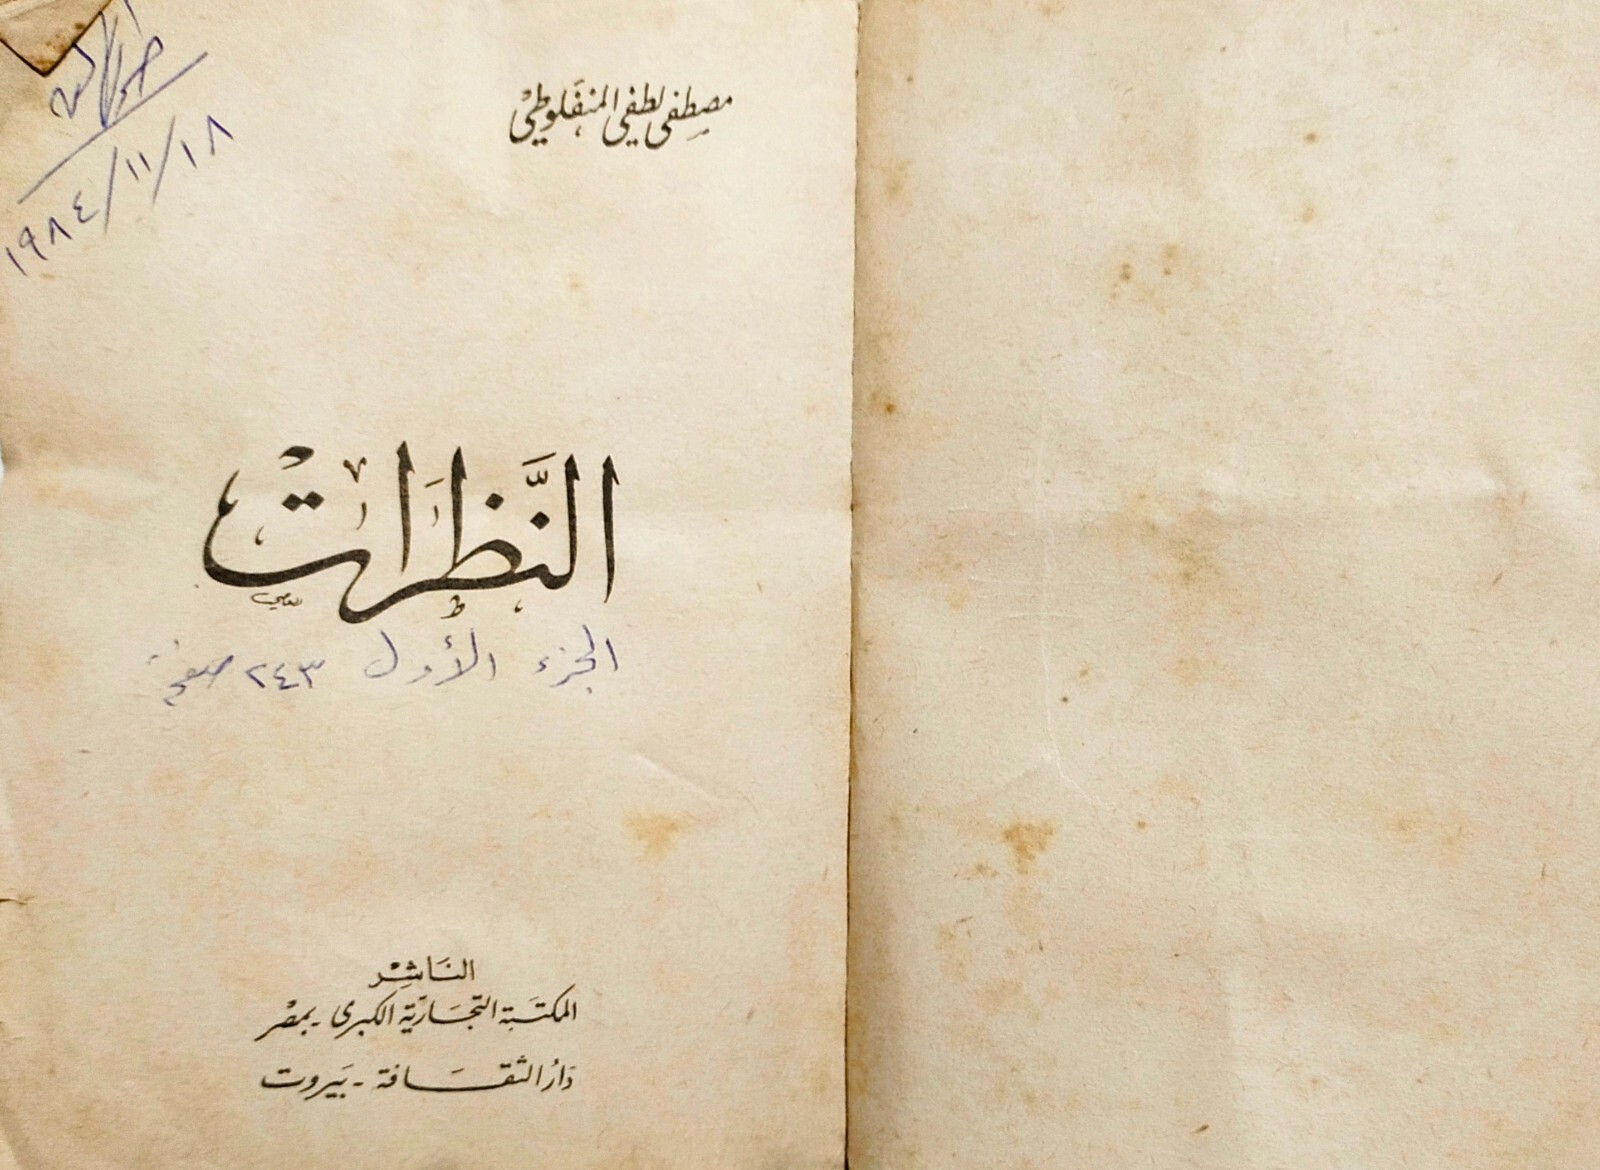 ١٩٨٤/١١/١٨
مصطفى لطفي المنفلوطي
النَّظَرَاتْ
الجزء الأول ٢٤٣ صفحة
النَاشِرْ
المكتَبَة التجَاريَّة الكبرى - بمصْر
دَارُ الثقَافة - بَيروت